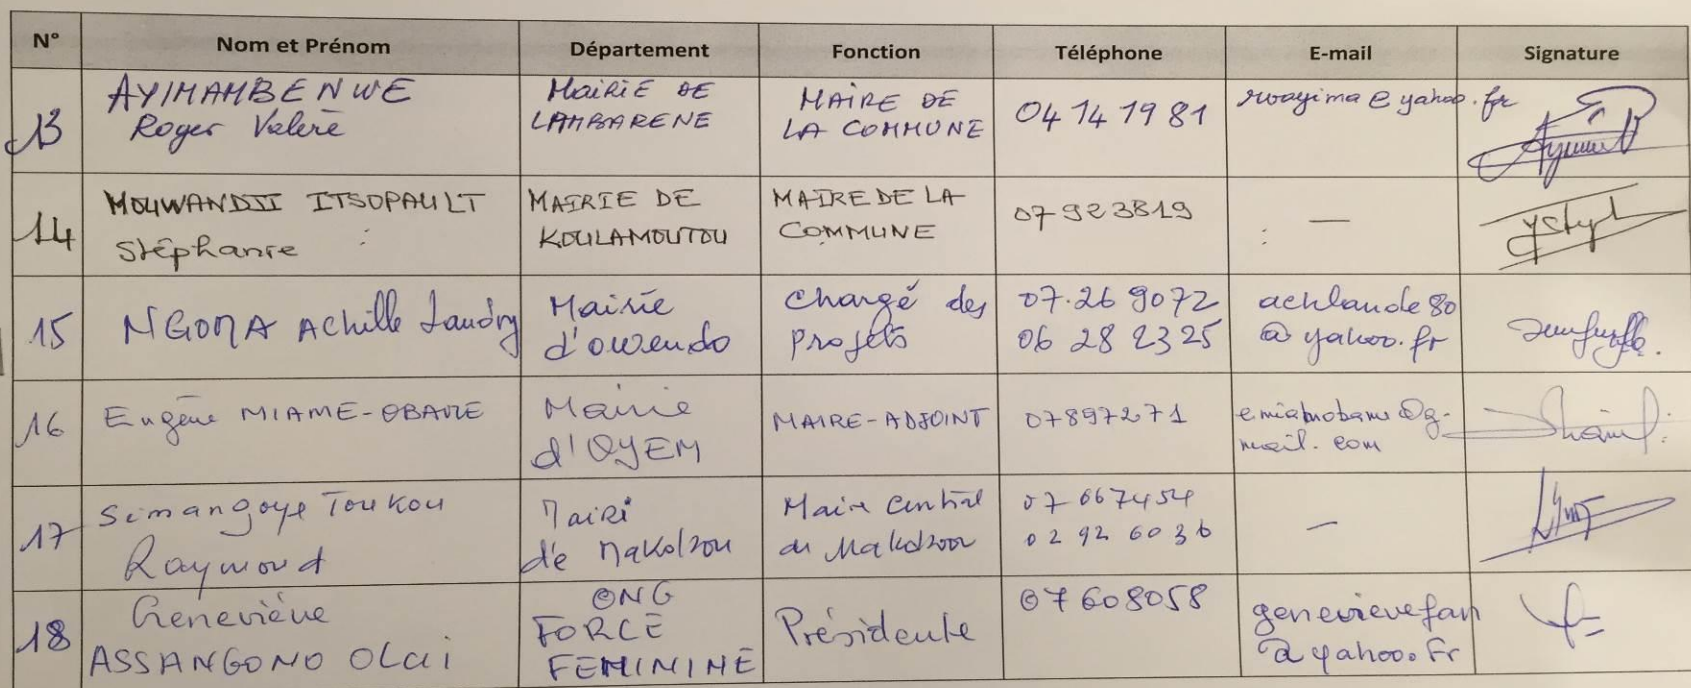 N° Nom et Prénom Département Fonction Téléphone E-mail Signature
13
AYIMAMBENWE
Roger Valere
MAIRIE DE
LAMBARENE
MAIRE DE
LA COMMUNE
04 14 19 81
rvayima@yahoo.fr
14
MOUWANDJI ITSOPAULT
Stéphanie
MAIRIE DE
KOULAMOUTOU
MAIRE DE LA
COMMUNE
07923819
—
15
NGOMA Achille Landry
Mairie
d'owendo
chargé des
projets
07.26 9072
06 28 2325
achlande80
@yahoo.fr
16
Eugène MIAME-OBAME
Mairie
d'OYEM
MAIRE-ADJOINT
07897271
@g-
mail.com
17
Simangoye Toukou
Raymond
Mairi
de Makokou
Maire Central
de Makokou
07 667454
02 92 60 36
—
18
Geneviève
ASSANGONO OLai
ONG
FORCE
FEMININE
Présidente
07608058
genevievefan
@yahoo.Fr